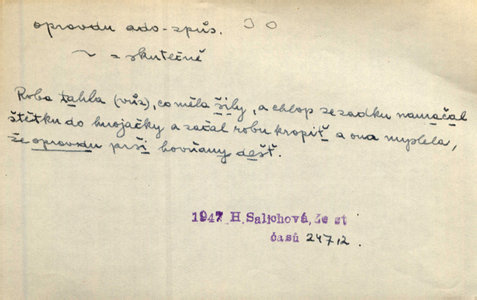 opravdu adv. způs.
~ = skutečně
Roba tahla (vůz), co měla šíly, a chlop ze zadku namáčal
štětku do hnojačky a začal robu kropiť a ona myslela,
že opravdu prší hovňany dešť.
1947 H. Salichová, Ze st
časů 247,2.